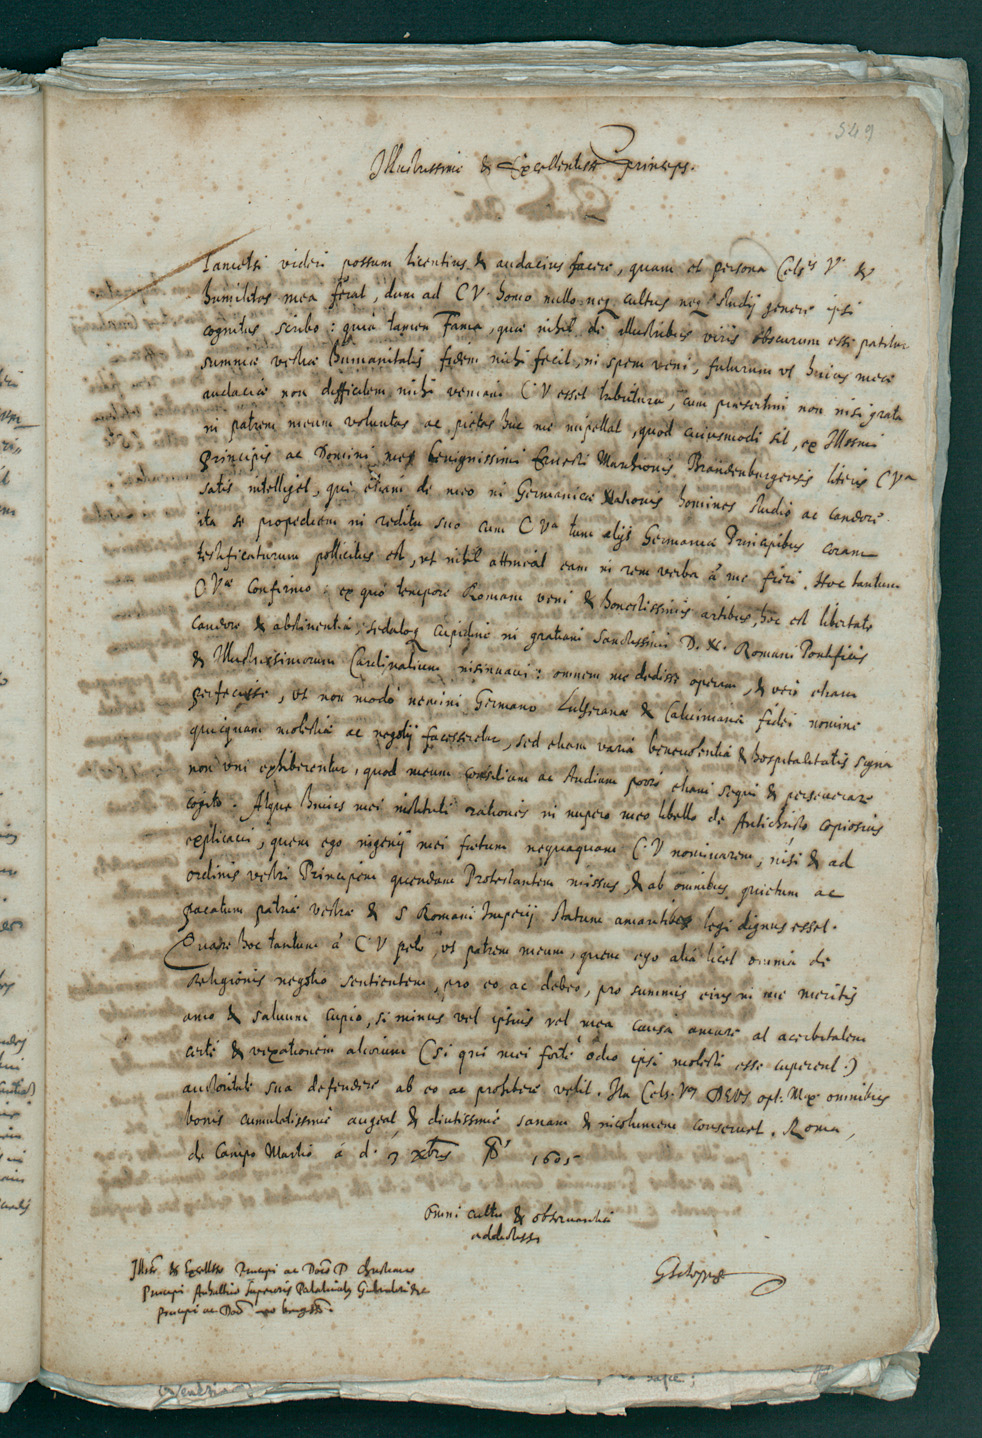 549
Illustrissime & Excellentiss. Princeps.
Tametsi videri possum licentius & audacius facere, quam et persona Celsis V. &
humilitas mea ferat, dum ad C V. homo nullo neq cultus neq studij genere ipsi
cognitus scribo: quia tamen Fama, quae nihil de illustribus viris obscurum esse patitur
summae vestrae humanitatis fidem mihi fecit, in spem veni, futurum vt huius meae
audaciae non difficulem mihi veniam C V esset tributura, cum praesertim non nisi grata
in patrem meum voluntas ac pietas huc me impellat, quod cuiusmodi sit, ex Illmi
Principis ac Domini mei benignissimi Ernesti Marchionis Brandenburgensis literis C Va
satis intelliget, qui etiam de meo in Germanicae Nationis homines studio ac candore
ita se propediem in reditu suo cum C Va tum alijs Germaniae Principibus coram
testificaturum pollicitus est, vt nihil attineat eam in rem verba à me fieri. Hoc tantum
C Vae confirmo: ex quo tempore Romam veni & honestissimis artibus, hoc est libertate
candore & abstinentia, sedaloq cupidine in gratiam Sanctissimi D. N. Romani Pontificis
& Illustrissimorum Cardinalium insinuavi: omnem me dedisse operam, & vero etiam
perfecisse, vt non modo nemini Germano Lutheranae & Calvinianae fidei nomine
quicquam molestiae ac negotij facesseretur, sed etiam varia benevolentiae & hospitalitatis signa
non vni exhiberentur, quod meum consilium ac studium porro etiam sequi & perseverare
cogito. Atque huius mei instituti rationes in nupero meo libello de Antichristo copiosius
explicavi, quem ego ingenij mei foetum nequaquam C V nominarem, nisi & ad
ordinis vestri Principem quendam Protestantem missus, & ab omnibus quietum ac
pacatum patriae vestrae & S Romani Imperij statum amantibus legi dignus esset.
Quare hoc tantum à C V peto, vt patrem meum, quem ego alia licet omnia de
Religionis negotio sentientem, pro eo ac debeo, pro summis eius in me meritis
amo & salvum cupio, si minus vel ipsius vel mea causa amare at acerbitatem
certe & vexationem aliorum (si qui mei forte odio ipsi molesti esse cuperent:)
auctoritate sua defendere ab eo ac prohibere velit. Ita Cels. Vam DEVS opt. Max omnibus
bonis cumulatissime augeat, & diutissime sanam & incolumem conservet. Romae,
de Campo Martio à d. 7 Xbris 1605
Omni cultu & observantia
addictiss
GSchoppe
Illmo & Excellmo Principi ac Dno D. Christiano
Principi Anhaltino Superioris Palatinatus Gubernatori &c
Principi ac Dno benigniss.